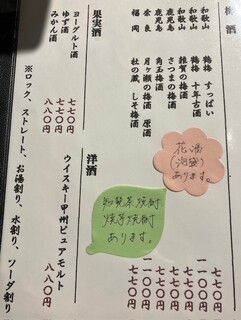 梅酒
和歌山 鶴梅 すっぱい
和歌山 鶴梅 十年古酒
和歌山 雑賀の梅酒
鹿児島 さつまの梅酒
鹿児島 角玉梅酒
奈良 月ヶ瀬の梅酒 原酒
福岡 杜の蔵 しそ梅酒
七七〇
一一〇〇
七七〇
七七〇
七七〇
一一〇〇
七七〇
花酒
(泡盛)
あります。
果実酒
ヨーグルト酒 七七〇
ゆず酒 七七〇
みかん酒 八八〇
洋酒
ウイスキー甲州ピュアモルト 八八〇
焼芋焼酎
あります。
※ロック、ストレート、お湯割り、水割り、ソーダ割り